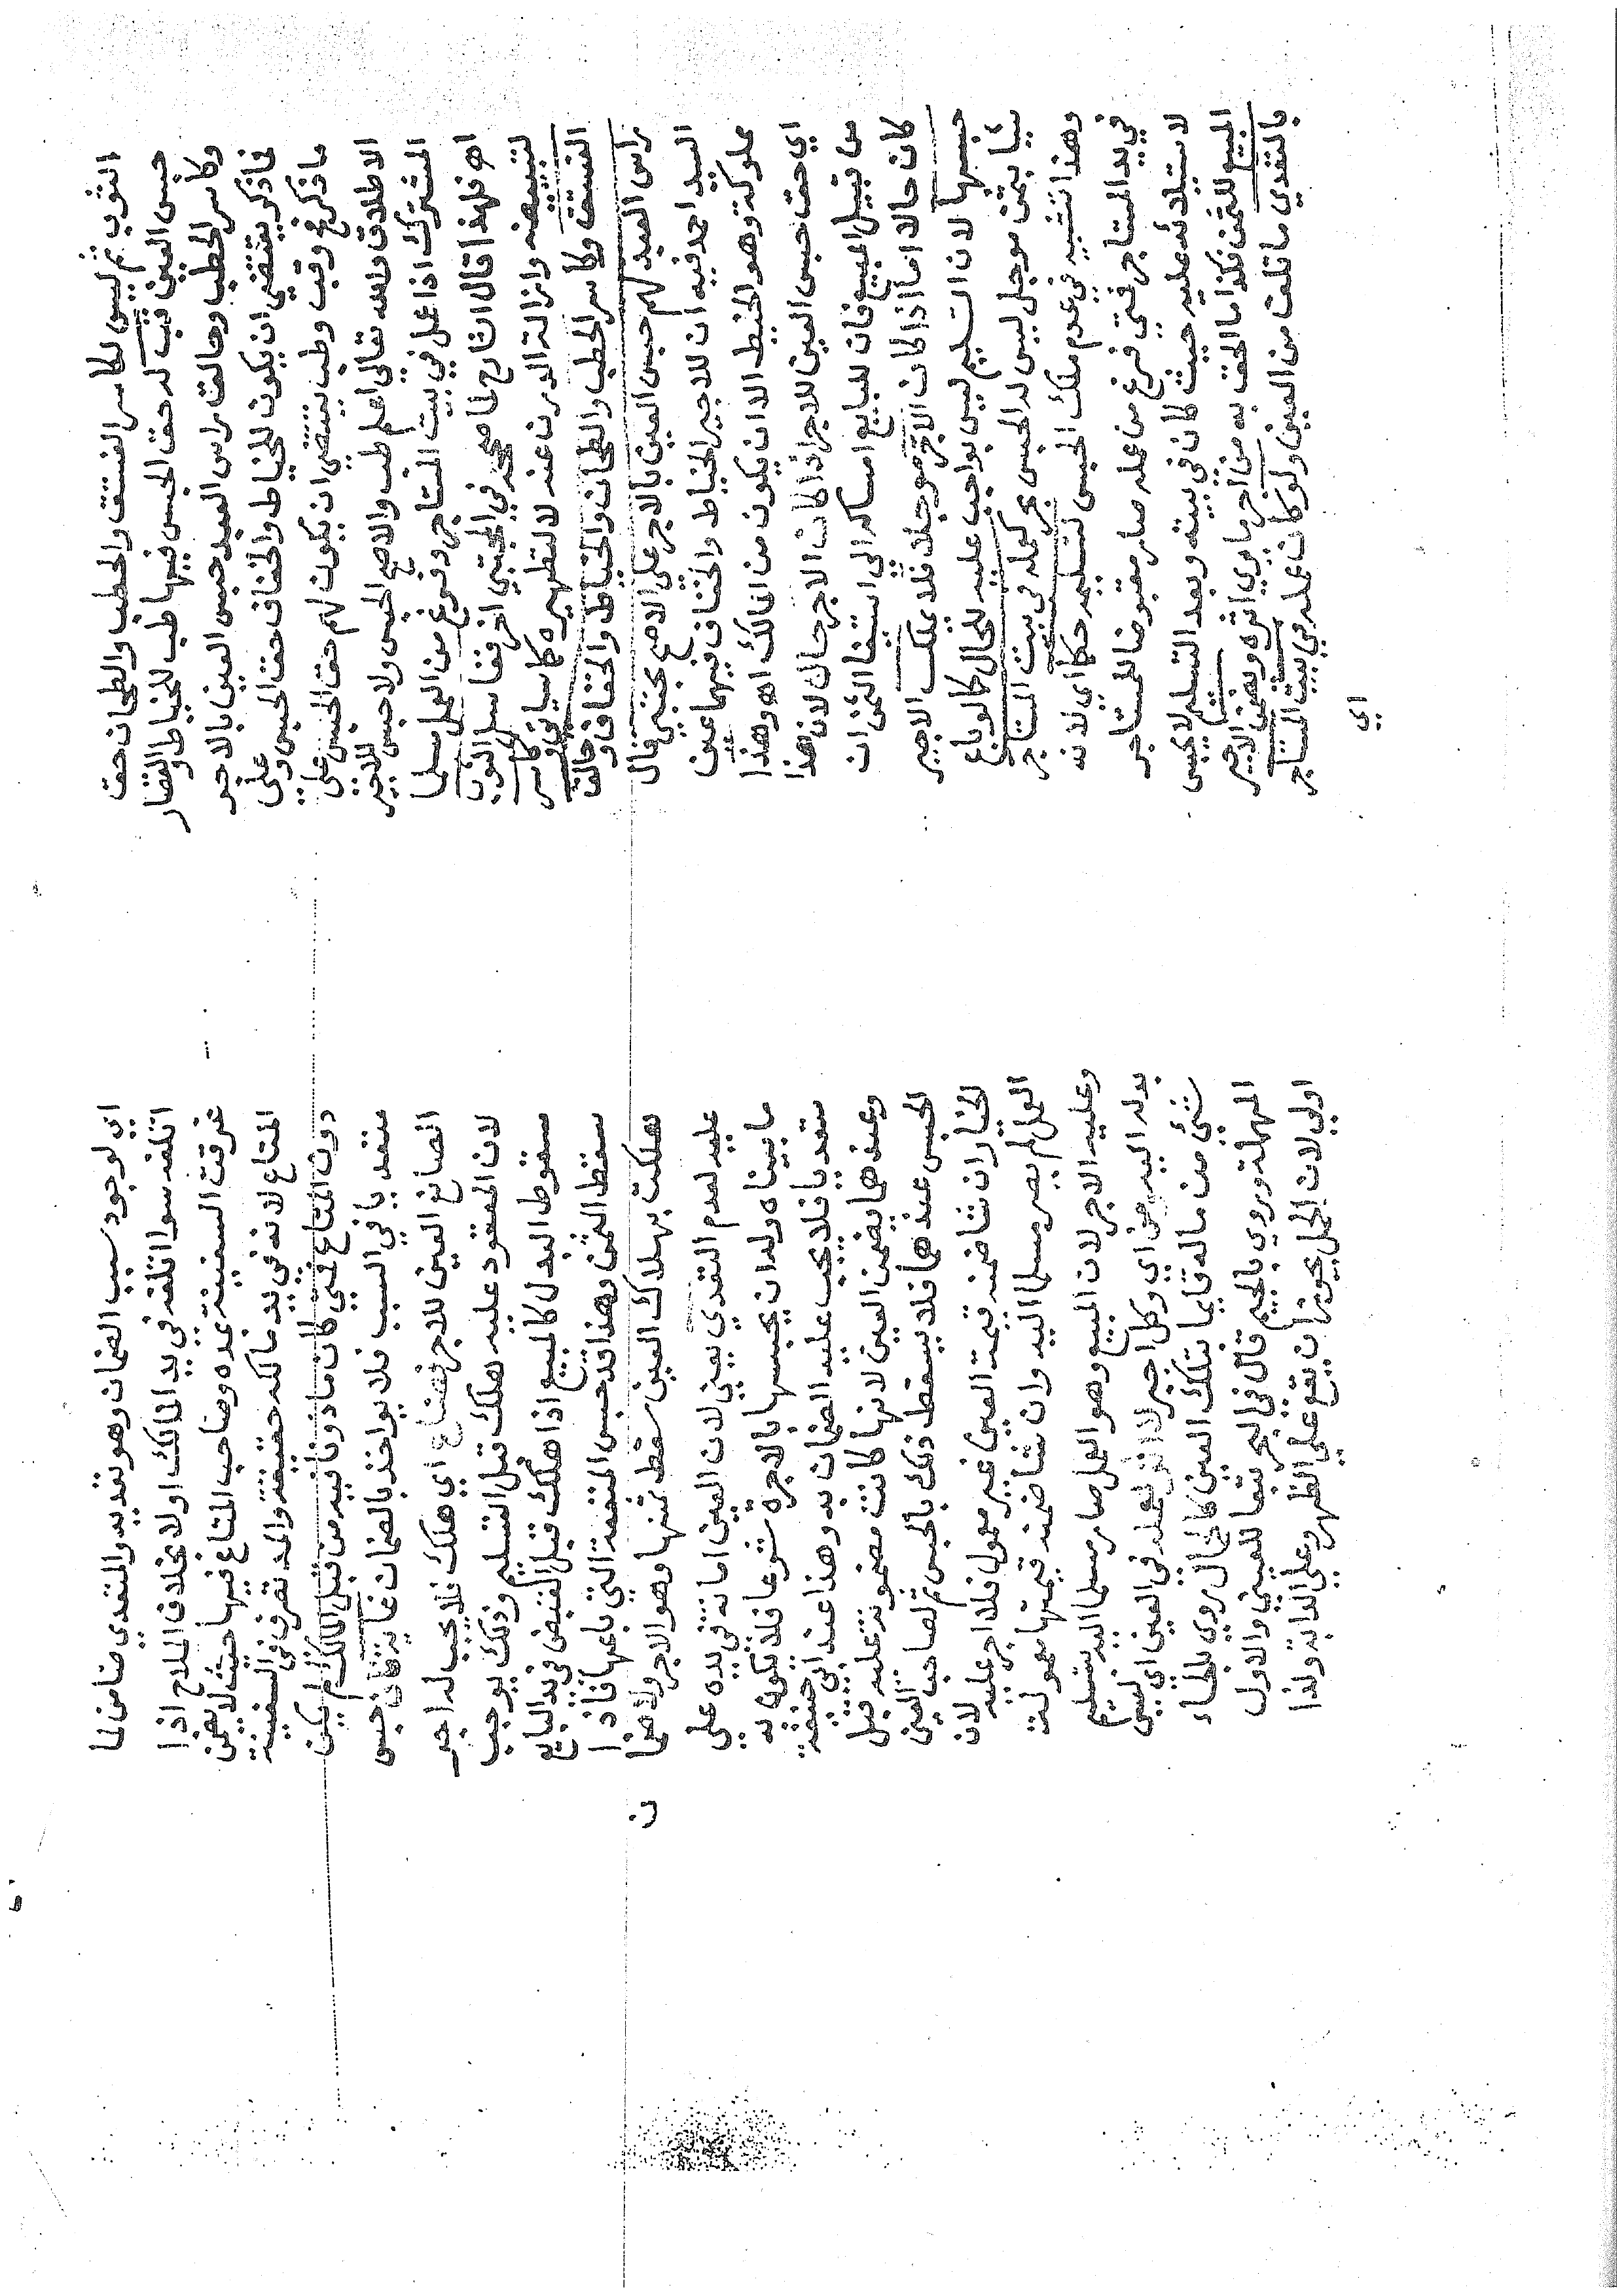 الثوب ثم ليس لكاسر الفستق والحطب والطحان حق
حبس العين قب له حق الحبس فيها طب للخياط والقصار
وكاسر الحطب وحالق راس العبد حبس العين بالاجر
فما ذكر يقتضي ان يكون للخياط والخفاف حق الحبس وعلي
ما ذكر في وقب وطب يقتضي ان يكون لهم حق الحبس علي
الاطلاق والله تعالى اعلم طب والاصح الحبس ولا حبس للاجير
المشترك اذا عمل في بيت المستاجر وفرغ من العمل سلما
اهـ فلهذا قال الشارح لما صححه في المجتبي اخر فغاسل الثوب
لتبييضه وازالة الدرن عنه لا لتطهيره كما سياتي وكاسر
الفستق وكاسر الحطب والطحان والخياط والخفاف وحالق
راس العبد لهم حبس العين بالاجر علي الاصح مجتبي قال
السيد احمد فيه ان للاجير الخياط والخفاف فيهما عين
مملوكة وهو الخيط الا ان يكون من المالك اهـ وهذا
اي حق حبس العين للاجر اذا كان الاجر حالا لان هذا
من قبيل المبيع فان للبايع امساكه الى استيفا الثمن ان
كان حالا اما اذا كان الاجر موجلا فلا يملك الاجير
حبسها لان التسليم ليس بواجب عليه للحال كما لو باع
شيا بثمن موجل ليس له الحبس كعمله في بيت المستاجر
وهذا تشبيه في عدم ملك الحبس لتسليمه حكما اي لانه
في يد المستاجر فمتى فرغ من عمله صار مقبوضا للمستاجر
لاستيلائه عليه حيث كان في بيته وبعد التسليم لا يحبس
المبيع للثمن فكذا ما الحق به من اجر ما وري اثره ويضمن الاجير
بالتعدي ما تلف من العين ولو كان عمله في بيت المستاجر
اي
اي لوجود سبب الضمان وهو تعديه والمتعدي ضامن لما
اتلفه سوا اتلفه في يد المالك اولا بخلاف الملاح اذا
غرقت السفينة بمده وصاحب المتاع فيها حيث لا يضمن
المتاع لانه في يد مالكه حقيقة واليد تصرف في السفينة
دون المتاع فمتى كان ماذونا فيه من قبل المالك لم يكن
متعديا في السبب فلا يواخذ بالضمان غاية فان حبس
الصانع العين للاجر فضاع اي هلك فلا يجب له اجر
لان المعقود عليه هلك قبل التسليم وذلك يوجب
سقوط البدل كالمبيع اذا هلك قبل القبض في يد البايع
سقط الثمن وهذا قد حبس المنفعة التي باعها فاذا
هلكت بهلاك العين سقط ثمنها وهو الاجر ولا ضما
ن
عليه لعدم التعدي يعني لان العين امانة في يده على
ما بيناه وله ان يحبسها بالاجرة شرعا فلا يكون به
متعديا فلا يجب عليه الضمان به وهذا عند ابي حنيفة
وعندهما يضمن العين لانها كانت مضمونة عليه قبل
الحبس عندهما فلا يسقط ذلك بالحبس ثم لصاحب العين
الخيار ان شا ضمنه قيمة العين غير معمول فلا اجر عليه لان
العمل لم يصر مسلما اليه وان شا ضمنه قيمتها معمولة
وعليه الاجر لان المبيع وهو العمل صار مسلما اليه بتسليم
بدله اليه ومن اي وكل اجير لا اثر لعمله في العين اي ليس
شيء من ماله قايما بتلك العين كالحمال روي بالحاء
المهملة وروي بالجيم قال في البحر تبعا للعيني والاول
اولي لان الحمل يجوز ان يقع علي الظهر وعلى الدابة ولذا